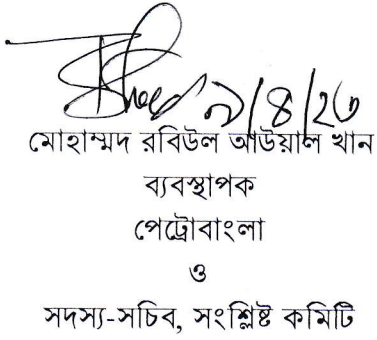 ৯/৪/২৩
মোহাম্মদ রবিউল আউয়াল খান
ব্যবস্থাপক
পেট্রোবাংলা
ও
সদস্য-সচিব, সংশ্লিষ্ট কমিটি